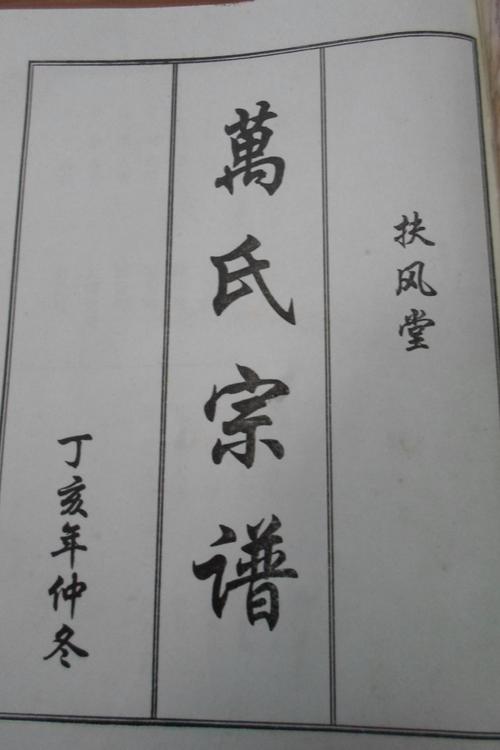 扶风堂
萬氏宗谱
丁亥年仲冬